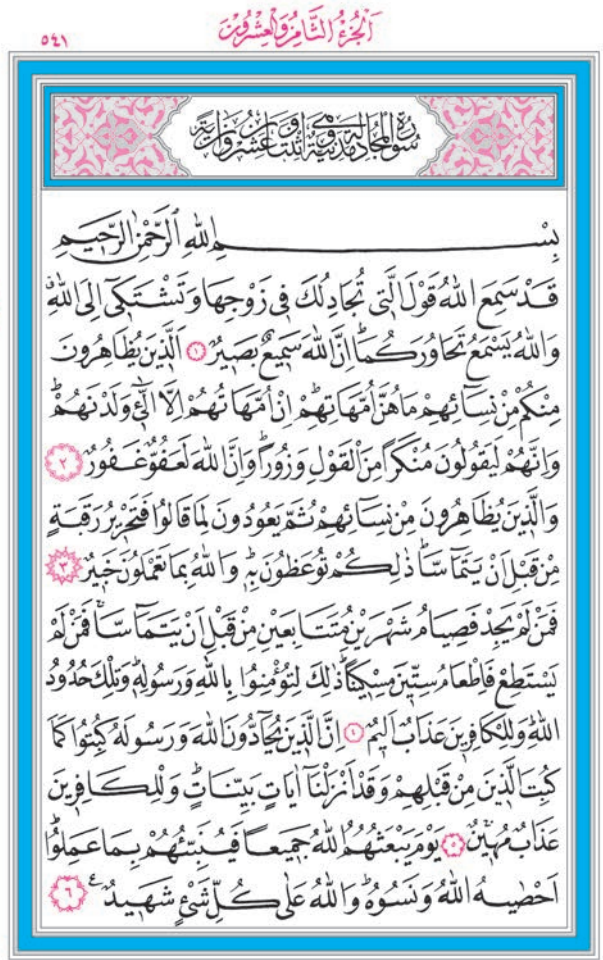 اَلْجُزْءُ الثَّامِنُ وَالْعِشْرُونَ
٥٤١
سُورَةُ الْمُجَادِلَةِ مَدَنِيَّةٌ وَهِيَ اثْنَتَانِ وَعِشْرُونَ اٰيَةً
بِسْمِ اللهِ الرَّحْمٰنِ الرَّحِيمِ
قَدْ سَمِعَ اللهُ قَوْلَ الَّتٖى تُجَادِلُكَ فٖى زَوْجِهَا وَتَشْتَكٖٓى اِلَى اللهِۗ
وَاللهُ يَسْمَعُ تَحَاوُرَكُمَاۜ اِنَّ اللهَ سَمِيعٌ بَصِيرٌ ﴿١﴾ اَلَّذِينَ يُظَاهِرُونَ
مِنْكُمْ مِنْ نِسَٓائِهِمْ مَا هُنَّ اُمَّهَاتِهِمْۜ اِنْ اُمَّهَاتُهُمْ اِلَّا الّٰٓـٖٔى وَلَدْنَهُمْۜ
وَاِنَّهُمْ لَيَقُولُونَ مُنْكَراً مِنَ الْقَوْلِ وَزُوراًۜ وَاِنَّ اللهَ لَعَفُوٌّ غَفُورٌ ﴿٢﴾
وَالَّذِينَ يُظَاهِرُونَ مِنْ نِسَٓائِهِمْ ثُمَّ يَعُودُونَ لِمَا قَالُوا فَتَحْرِيرُ رَقَبَةٍ
مِنْ قَبْلِ اَنْ يَتَمَٓاسَّاۜ ذٰلِكُمْ تُوعَظُونَ بِهٖۜ وَاللهُ بِمَا تَعْمَلُونَ خَبِيرٌ ﴿٣﴾
فَمَنْ لَمْ يَجِدْ فَصِيَامُ شَهْرَيْنِ مُتَتَابِعَيْنِ مِنْ قَبْلِ اَنْ يَتَمَٓاسَّاۚ فَمَنْ لَمْ
يَسْتَطِعْ فَاِطْعَامُ سِتِّينَ مِسْكِيناًۜ ذٰلِكَ لِتُؤْمِنُوا بِاللهِ وَرَسُولِهٖۜ وَتِلْكَ حُدُودُ
اللهِۜ وَلِلْكَافِرِينَ عَذَابٌ اَلِيمٌ ﴿٤﴾ اِنَّ الَّذِينَ يُحَٓادُّونَ اللهَ وَرَسُولَهُ كُبِتُوا كَمَا
كُبِتَ الَّذِينَ مِنْ قَبْلِهِمْ وَقَدْ اَنْزَلْنَٓا اٰيَاتٍ بَيِّنَاتٍۜ وَلِلْكَافِرِينَ
عَذَابٌ مُهِينٌ ﴿٥﴾ يَوْمَ يَبْعَثُهُمُ اللهُ جَمِيعاً فَيُنَبِّئُهُمْ بِمَا عَمِلُواۜ
اَحْصٰيهُ اللهُ وَنَسُوهُۜ وَاللهُ عَلٰى كُلِّ شَيْءٍ شَهِيدٌ ع ﴿٦﴾